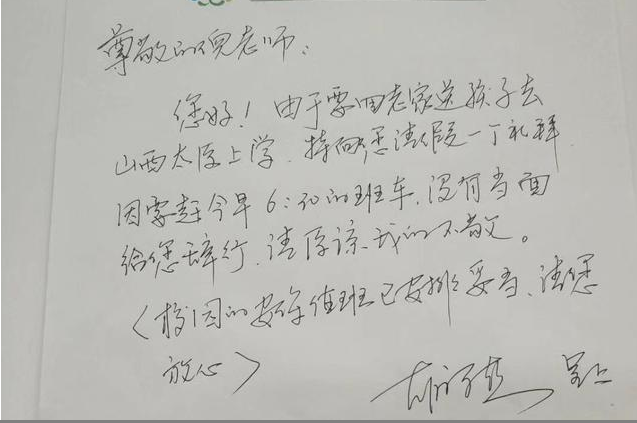 尊敬的倪老师：
您好！由于要回老家送孩子去
山西太原上学，特向您请假一个礼拜
因需赶今早6:30的班车，没有当面
给您辞行，请原谅我的不敬。
（校园的安全值班已安排妥当、请您
放心）
呈上